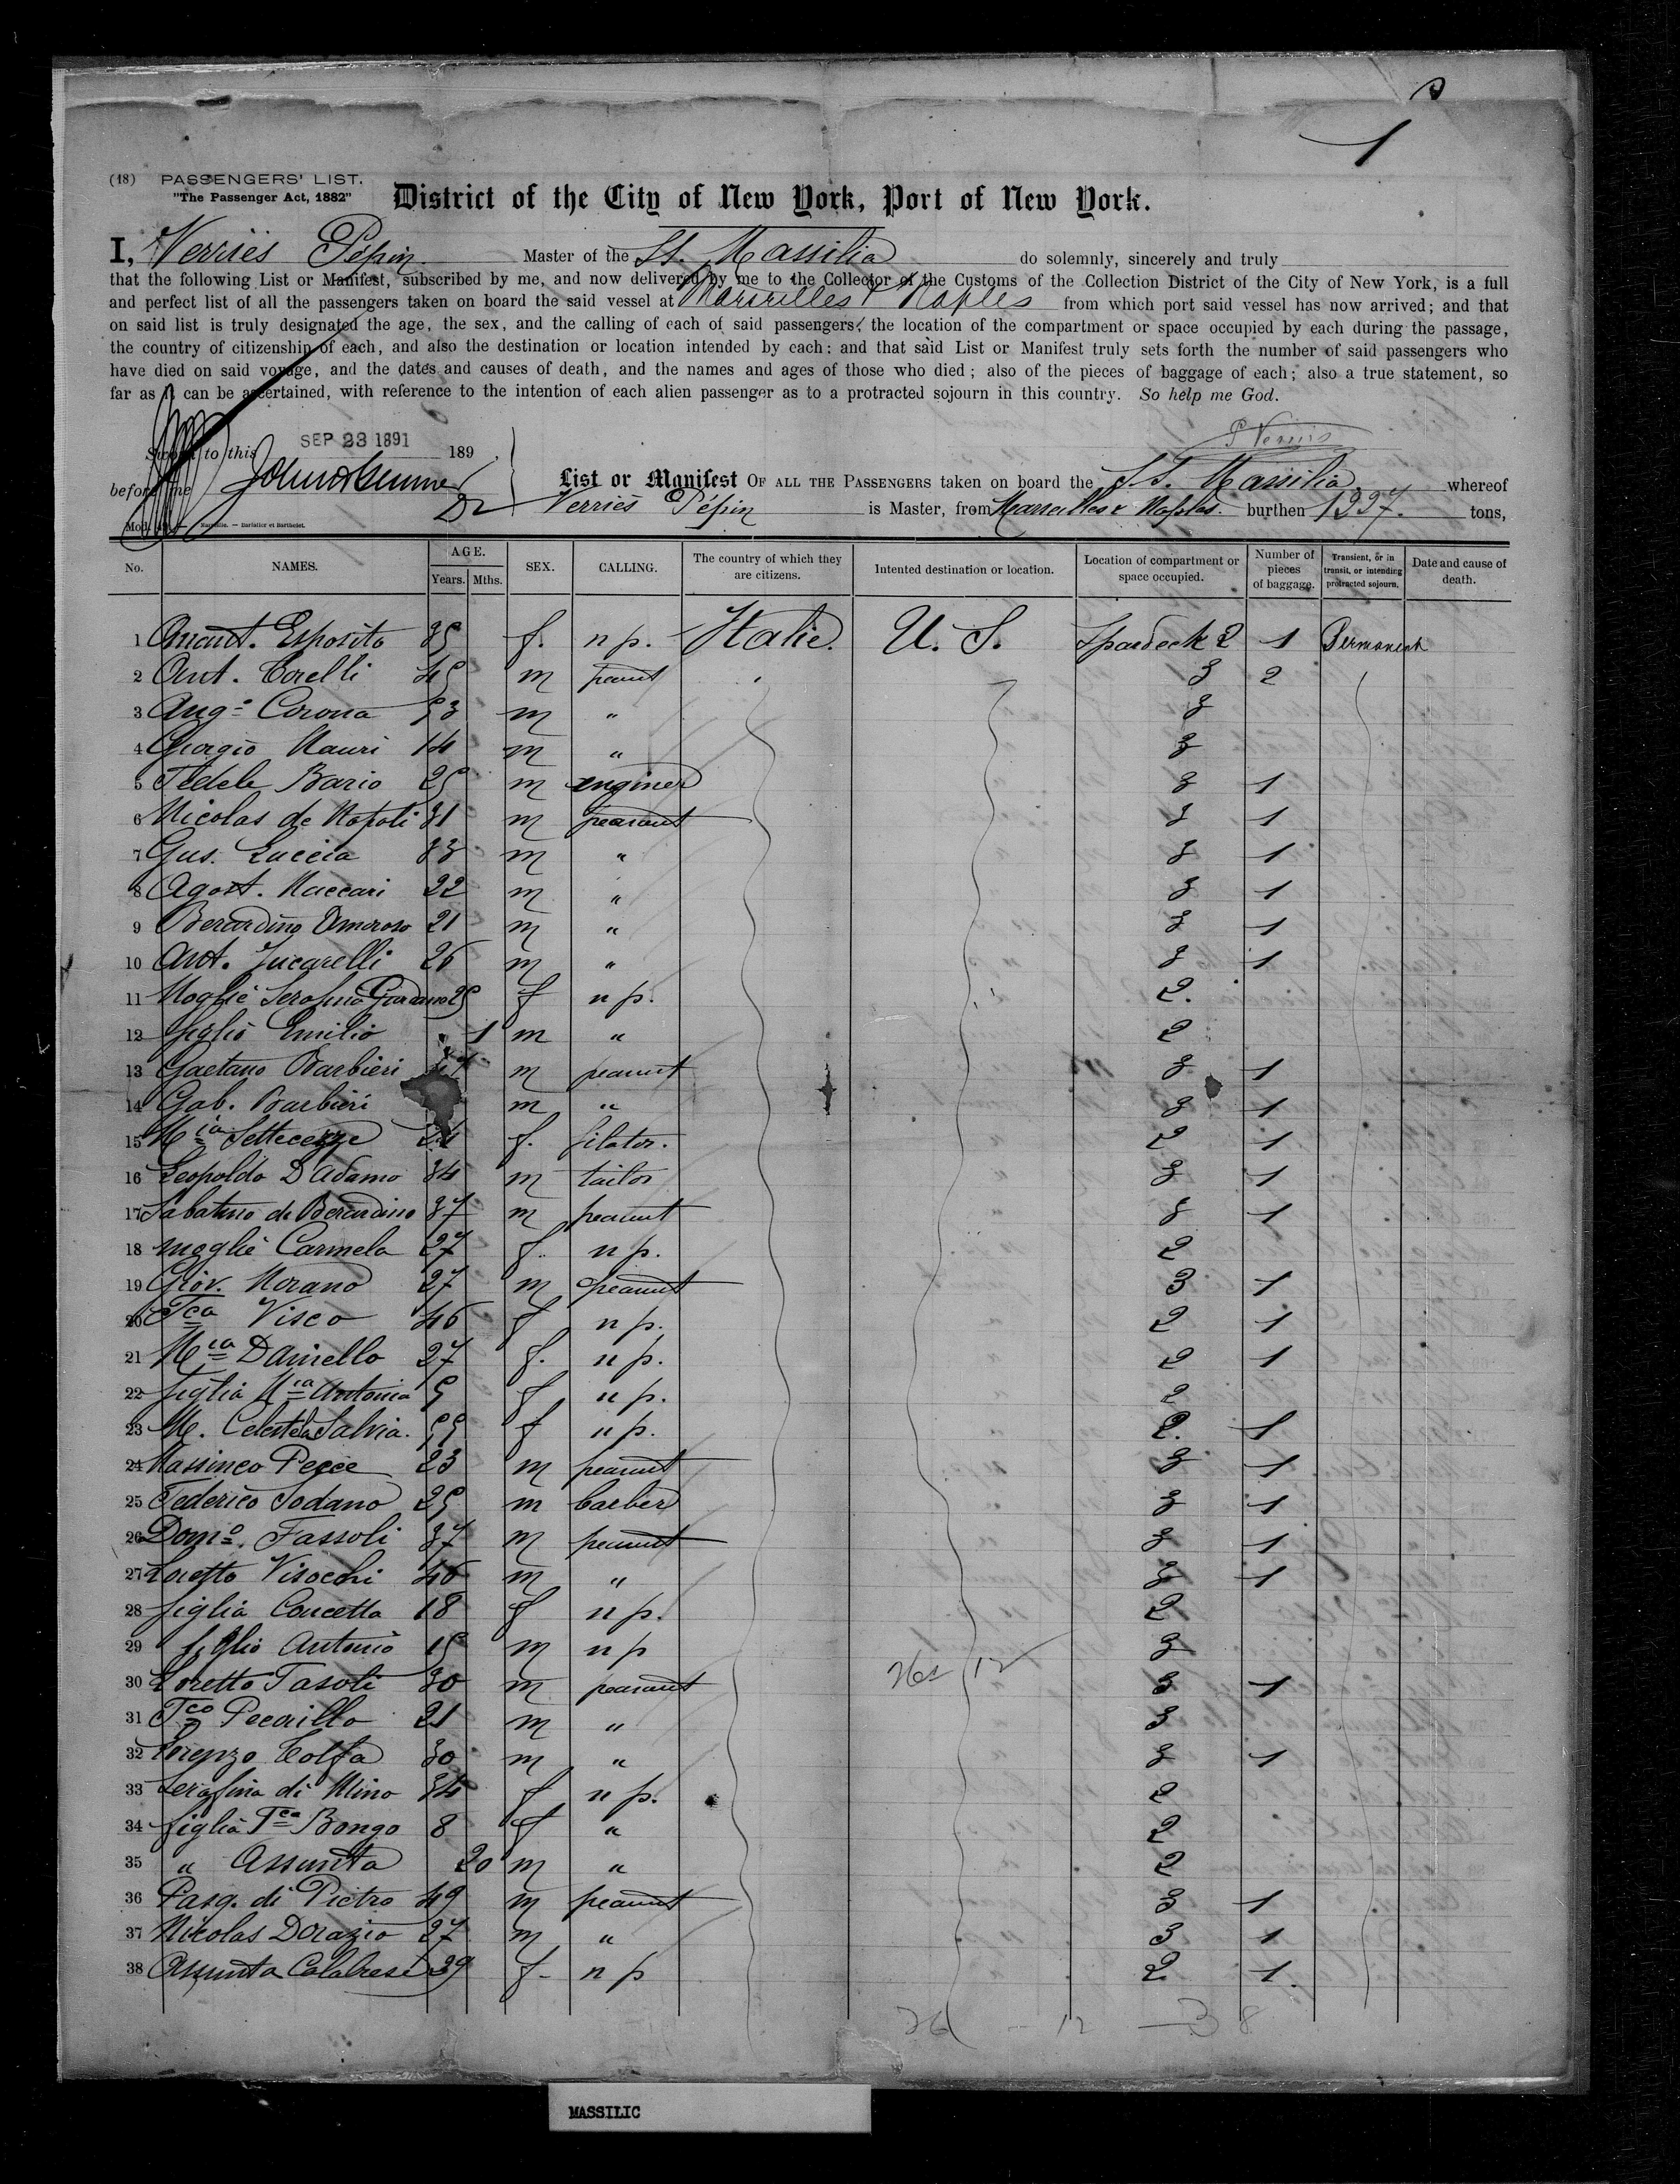 1
(18) PASSENGERS' LIST.
"The Passenger Act, 1882"
District of the City of New York, Port of New York.
I, Verriès Pépin Master of the St. Massilia do solemnly, sincerely and truly
that the following List or Manifest, subscribed by me, and now delivered by me to the Collector of the Customs of the Collection District of the City of New York, is a full
and perfect list of all the passengers taken on board the said vessel at Marseilles & Naples from which port said vessel has now arrived; and that
on said list is truly designated the age, the sex, and the calling of each of said passengers, the location of the compartment or space occupied by each during the passage,
the country of citizenship of each, and also the destination or location intended by each: and that said List or Manifest truly sets forth the number of said passengers who
have died on said voyage, and the dates and causes of death, and the names and ages of those who died; also of the pieces of baggage of each; also a true statement, so
far as it can be ascertained, with reference to the intention of each alien passenger as to a protracted sojourn in this country. So help me God.
P Verriès
Sworn to this SEP 23 1891 189
before me
List or Manifest OF ALL THE PASSENGERS taken on board the St. Massilia whereof
Verriès Pépin is Master, from Marseilles & Naples. burthen 1337. tons,
No. NAMES. AGE. Years. Mths. SEX. CALLING. The country of which they are citizens. Intented destination or location. Location of compartment or space occupied. Number of pieces of baggage. Transient, or in transit, or intending protracted sojourn. Date and cause of death.
1 Esposito 35 f. n p. Italie. U. S. Spardeck 2 1 Permanent
2 Ant. Corelli 45 m 3 2
3 Aug.o Corona 53 m " 3
4 Giorgio Mauri 14 m " 3
5 Fedele Bario 25 m engineer 3 1
6 Nicolas de Napoli 31 m peasant 3 1
7 Gus. Luccia 33 m " 3 1
8 Agost. Maccari 22 m " 3 1
9 Berardino Amoroso 21 m " 3 1
10 Ant. Lucarelli 26 m " 3 1
11 Moglie Serafina Giordano 25 f n p. 2.
12 figlio Emilio 1 m " 2
13 Gaetano Barbieri m peasant 3 1
14 Gab. Barbieri m " 3 1
15 Mia Settecezze f. filator. 2 1
16 Leopoldo D'Adamo 34 m tailor 3 1
17 Sabatino de Berardino 37 m peasant 3 1
18 moglie Carmela 27 f. n p. 2
19 Giov. Morano 27 m peasant 3 1
20 Fca Visco 46 f n p. 2 1
21 Mia Daniello 27 f. n p. 2 1
22 figlia Mia Antonia 5 f n p. 2
23 M. Celeste La Salvia. 55 f n p. 2. 1
24 Massineo Pesce 23 m peasant 3 1
25 Federico Sodano 25 m barber 3 1
26 Domo. Fassoli 37 m peasant 3 1
27 Loretto Visocchi 46 m " 3 1
28 figlia Concetta 18 f n p. 2
29 figlio Antonio 15 m n p 3
30 Loretto Fasoli 30 m peasant 3 1
31 Fco Pecorillo 21 m " 3
32 Lorenzo Colfa 30 m " 3 1
33 Serafina di Mino 34 f n p. 2
34 figlia Fca Bongo 8 f " 2
35 " Assunta 20 m " 2
36 Pasq. di Pietro 49 m peasant 3 1
37 Nicolas Dorazio 27 m " 3 1
38 Assunta Calabrese 39 f. n p 2 1.
26 - 12 - 38
MASSILIC